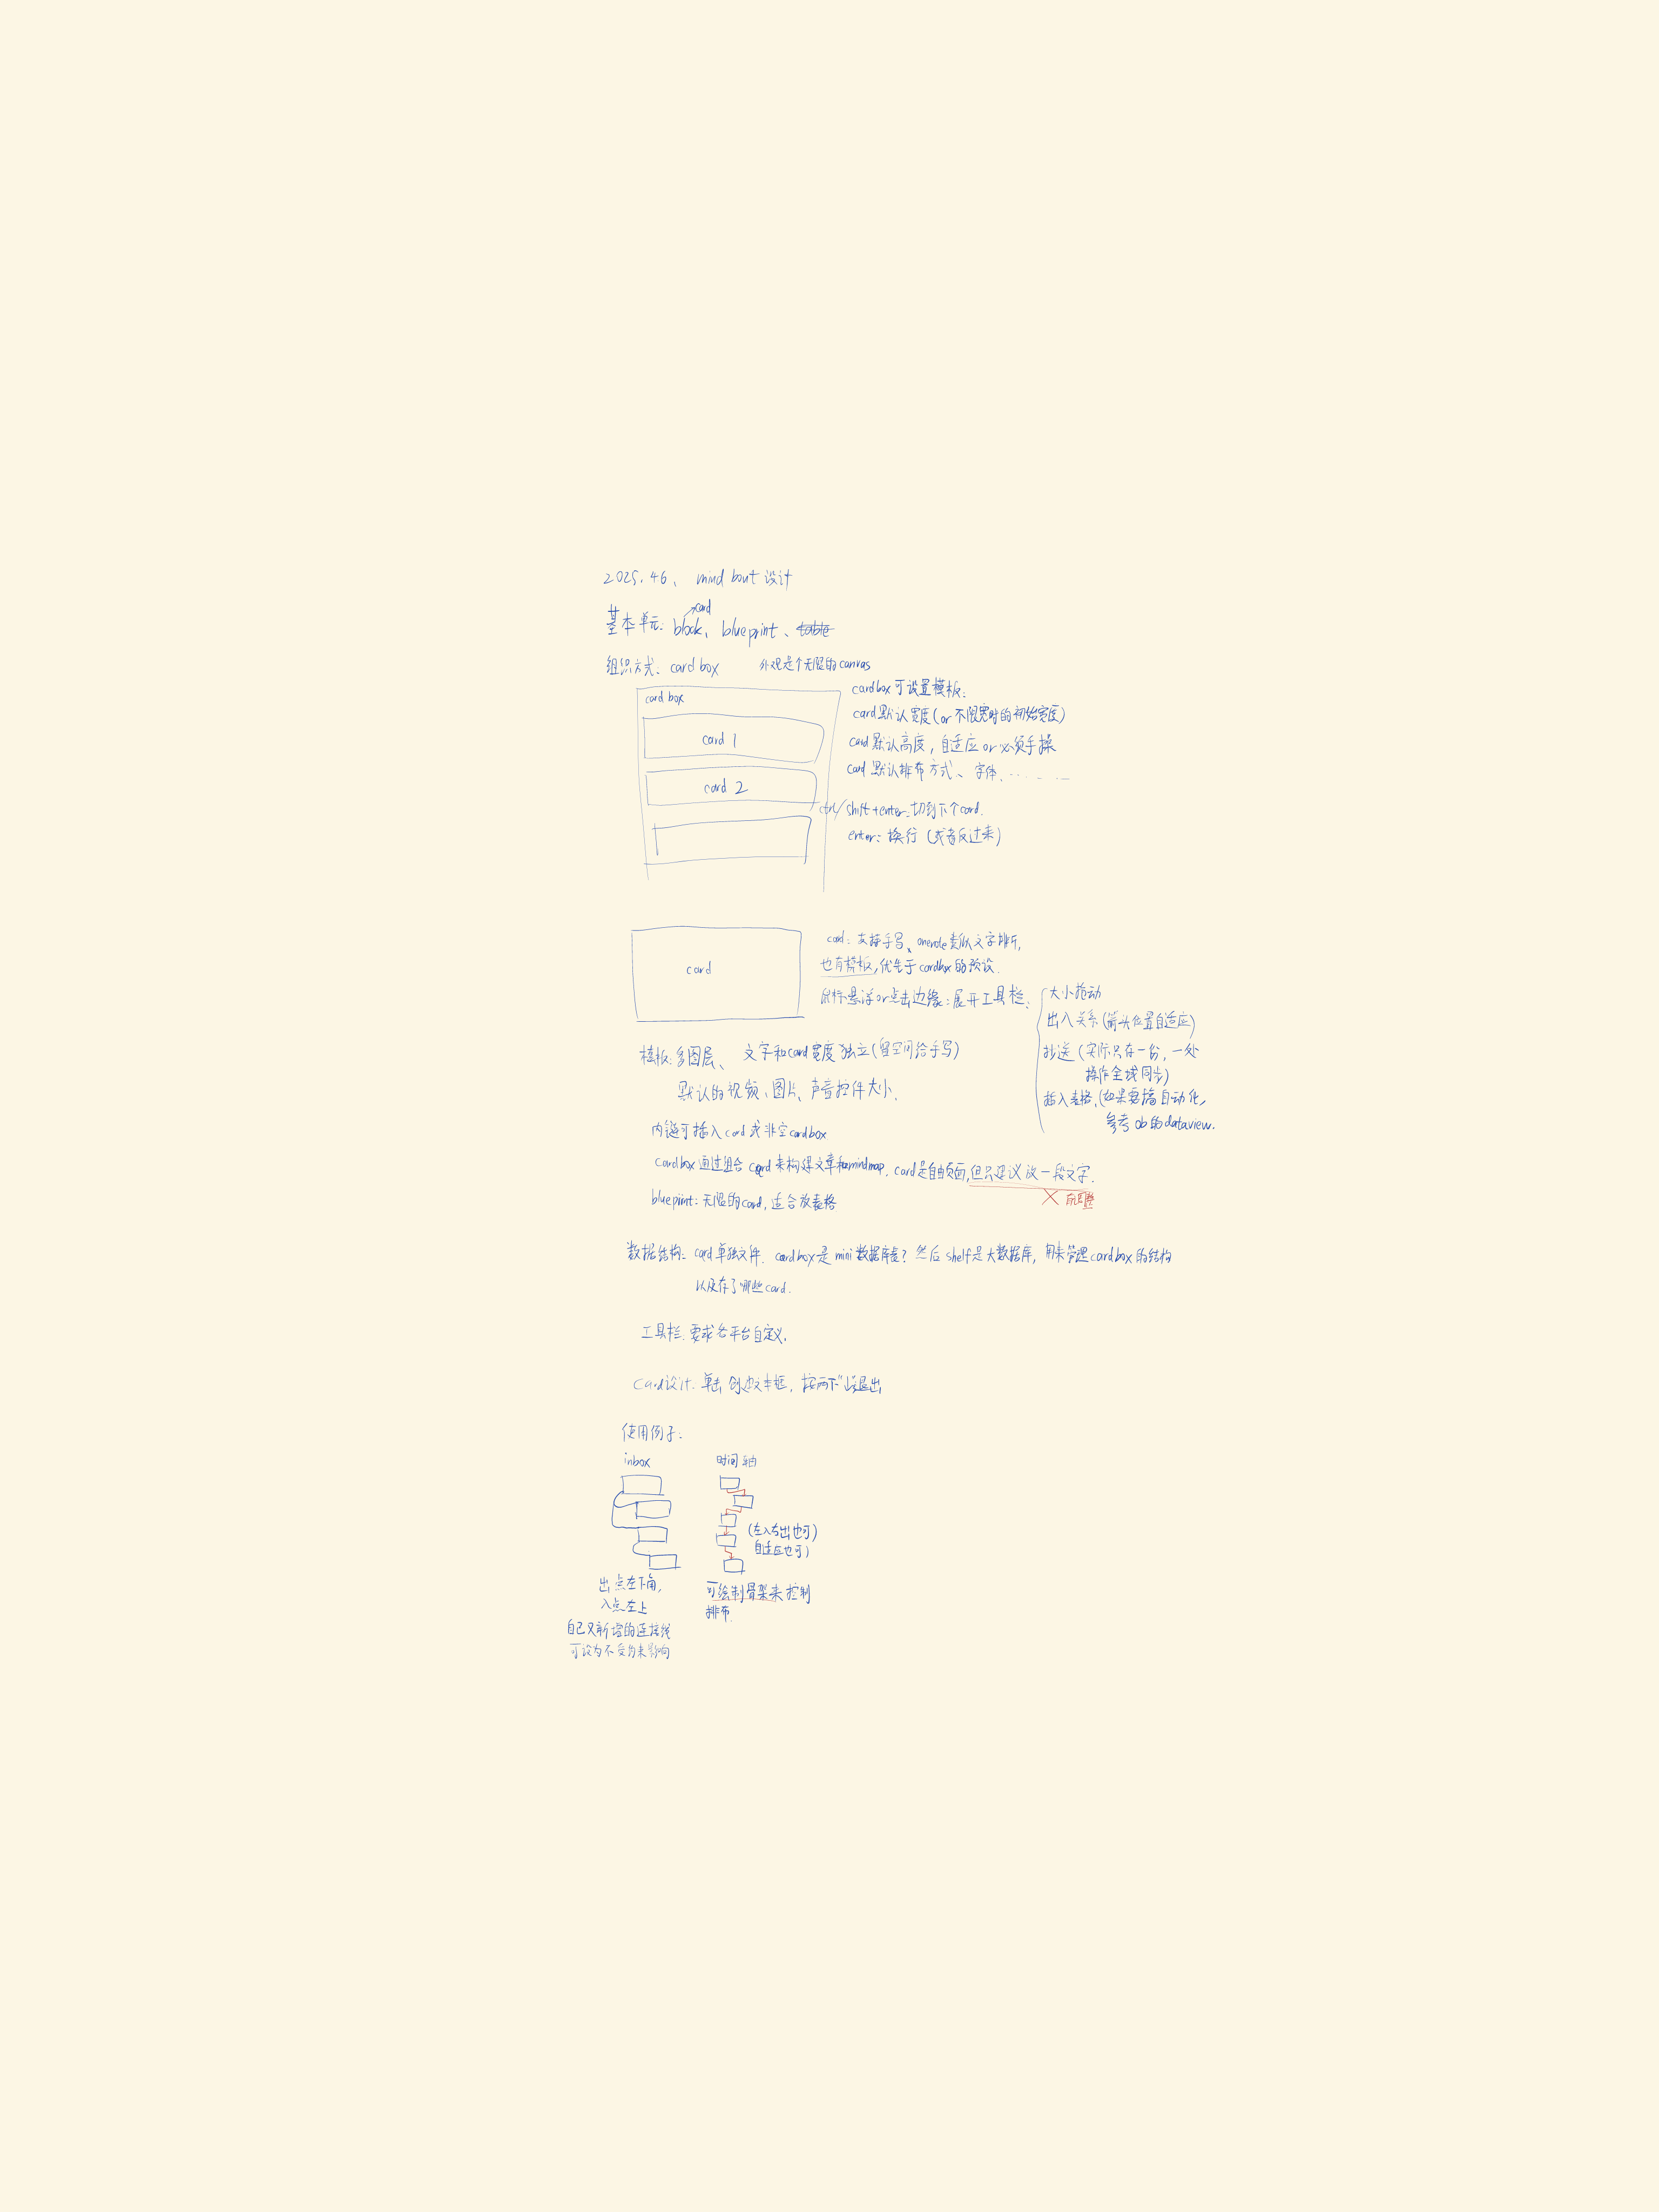 2025.4.6、 mind bout 设计
card
基本单元: block、blueprint、table
组织方式: cardbox 外观是个无限的canvas
card box
card 1
card 2
cardbox可设置模板:
card默认宽度(or不限宽时的初始宽度)
card默认高度,自适应or必须手操
card默认排布方式、字体、……
ctrl/shift+enter 切到下个card.
enter: 换行(或者反过来)
card
card: 支持手写、onenote类似文字排版,
也有模板,优先于cardbox的预设.
鼠标悬浮or点击边缘: 展开工具栏:
大小拖动
出入关系(箭头位置自适应)
抄送(实际只存一份,一处
操作全域同步)
插入表格,(如果要搞自动化,
参考ob的dataview.
模板: 多图层、文字和card宽度独立(留空间给手写)
默认的视频、图片、声音控件大小.
内链可插入card或非空cardbox
cardbox通过组合card来构建文章和mindmap. card是自由页面,但只建议放一段文字.
×
blueprint: 无限的card,适合放表格
数据结构: card单独文件. cardbox是mini数据库? 然后shelf是大数据库,用来管理cardbox的结构
以及存了哪些card.
工具栏: 要求各平台自定义.
card设计: 单击创建文本框,按两下
使用例子:
inbox
时间轴
(左入右出也可)
自适应也可)
出点左下角,
入点左上
自己又新增的连接线
可设为不受约束影响
可绘制骨架来控制
排布.